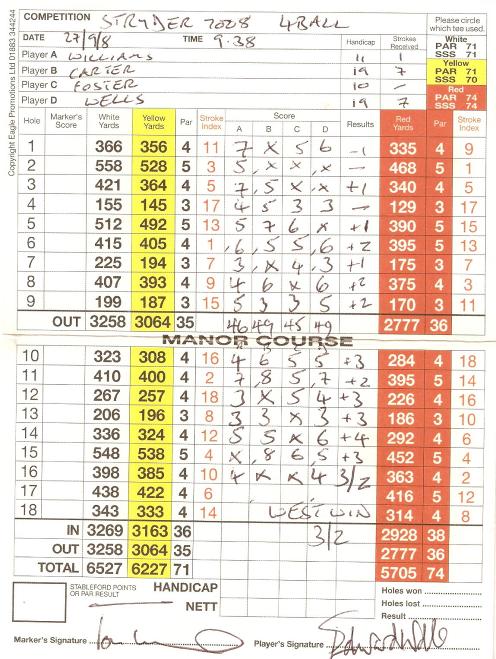 Copyright Eagle Promotions Ltd 01883 344244
COMPETITION STRYDER 2008 4BALL
Please circle which tee used.
DATE 27/9/8 TIME 9.38 Handicap Strokes Received
White PAR 71 SSS 71
Player A WILLIAMS 11 1
Yellow PAR 71 SSS 70
Player B CARTER 19 7
Player C FOSTER 10 —
Red PAR 74 SSS 74
Player D WELLS 19 7
Hole Marker's Score White Yards Yellow Yards Par Stroke Index Score A B C D Results Red Yards Par Stroke Index
1 366 356 4 11 7 x 5 6 -1 335 4 9
2 558 528 5 3 5 x x x — 468 5 1
3 421 364 4 5 7 5 x x +1 340 4 5
4 155 145 3 17 4 5 3 3 — 129 3 17
5 512 492 5 13 5 7 6 x +1 390 5 15
6 415 405 4 1 6 5 5 6 +2 395 5 13
7 225 194 3 7 3 x 4 3 +1 175 3 7
8 407 393 4 9 4 6 x 6 +2 375 4 3
9 199 187 3 15 5 3 3 5 +2 170 3 11
OUT 3258 3064 35 46 49 45 49 2777 36
MANOR COURSE
10 323 308 4 16 4 6 5 5 +3 284 4 18
11 410 400 4 2 7 8 5 7 +2 395 5 14
12 267 257 4 18 3 x 5 4 +3 226 4 16
13 206 196 3 8 3 3 x 3 +3 186 3 10
14 336 324 4 12 5 5 x 6 +4 292 4 6
15 548 538 5 4 x 8 6 5 +3 452 5 4
16 398 385 4 10 4 x x 4 3/2 363 4 2
17 438 422 4 6 416 5 12
18 343 333 4 14 WEST WIN 314 4 8
IN 3269 3163 36 3/2 2928 38
OUT 3258 3064 35 2777 36
TOTAL 6527 6227 71 5705 74
STABLEFORD POINTS OR PAR RESULT
HANDICAP
NETT
Holes won
Holes lost
Result
Marker's Signature
Player's Signature